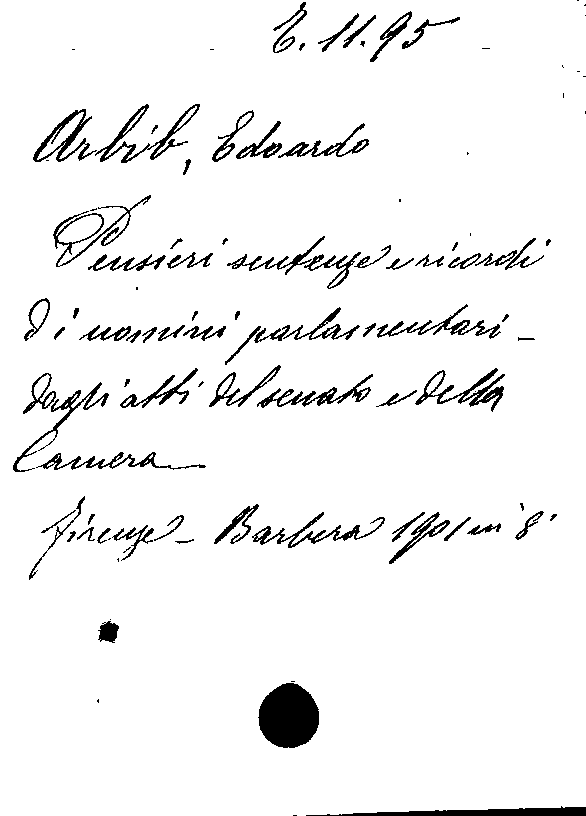 E.11.95
Arbib, Edoardo
Pensieri sentenze e ricordi
di uomini parlamentari -
dagli atti del senato e della
Camera
Firenze - Barbera 1901 in 8°